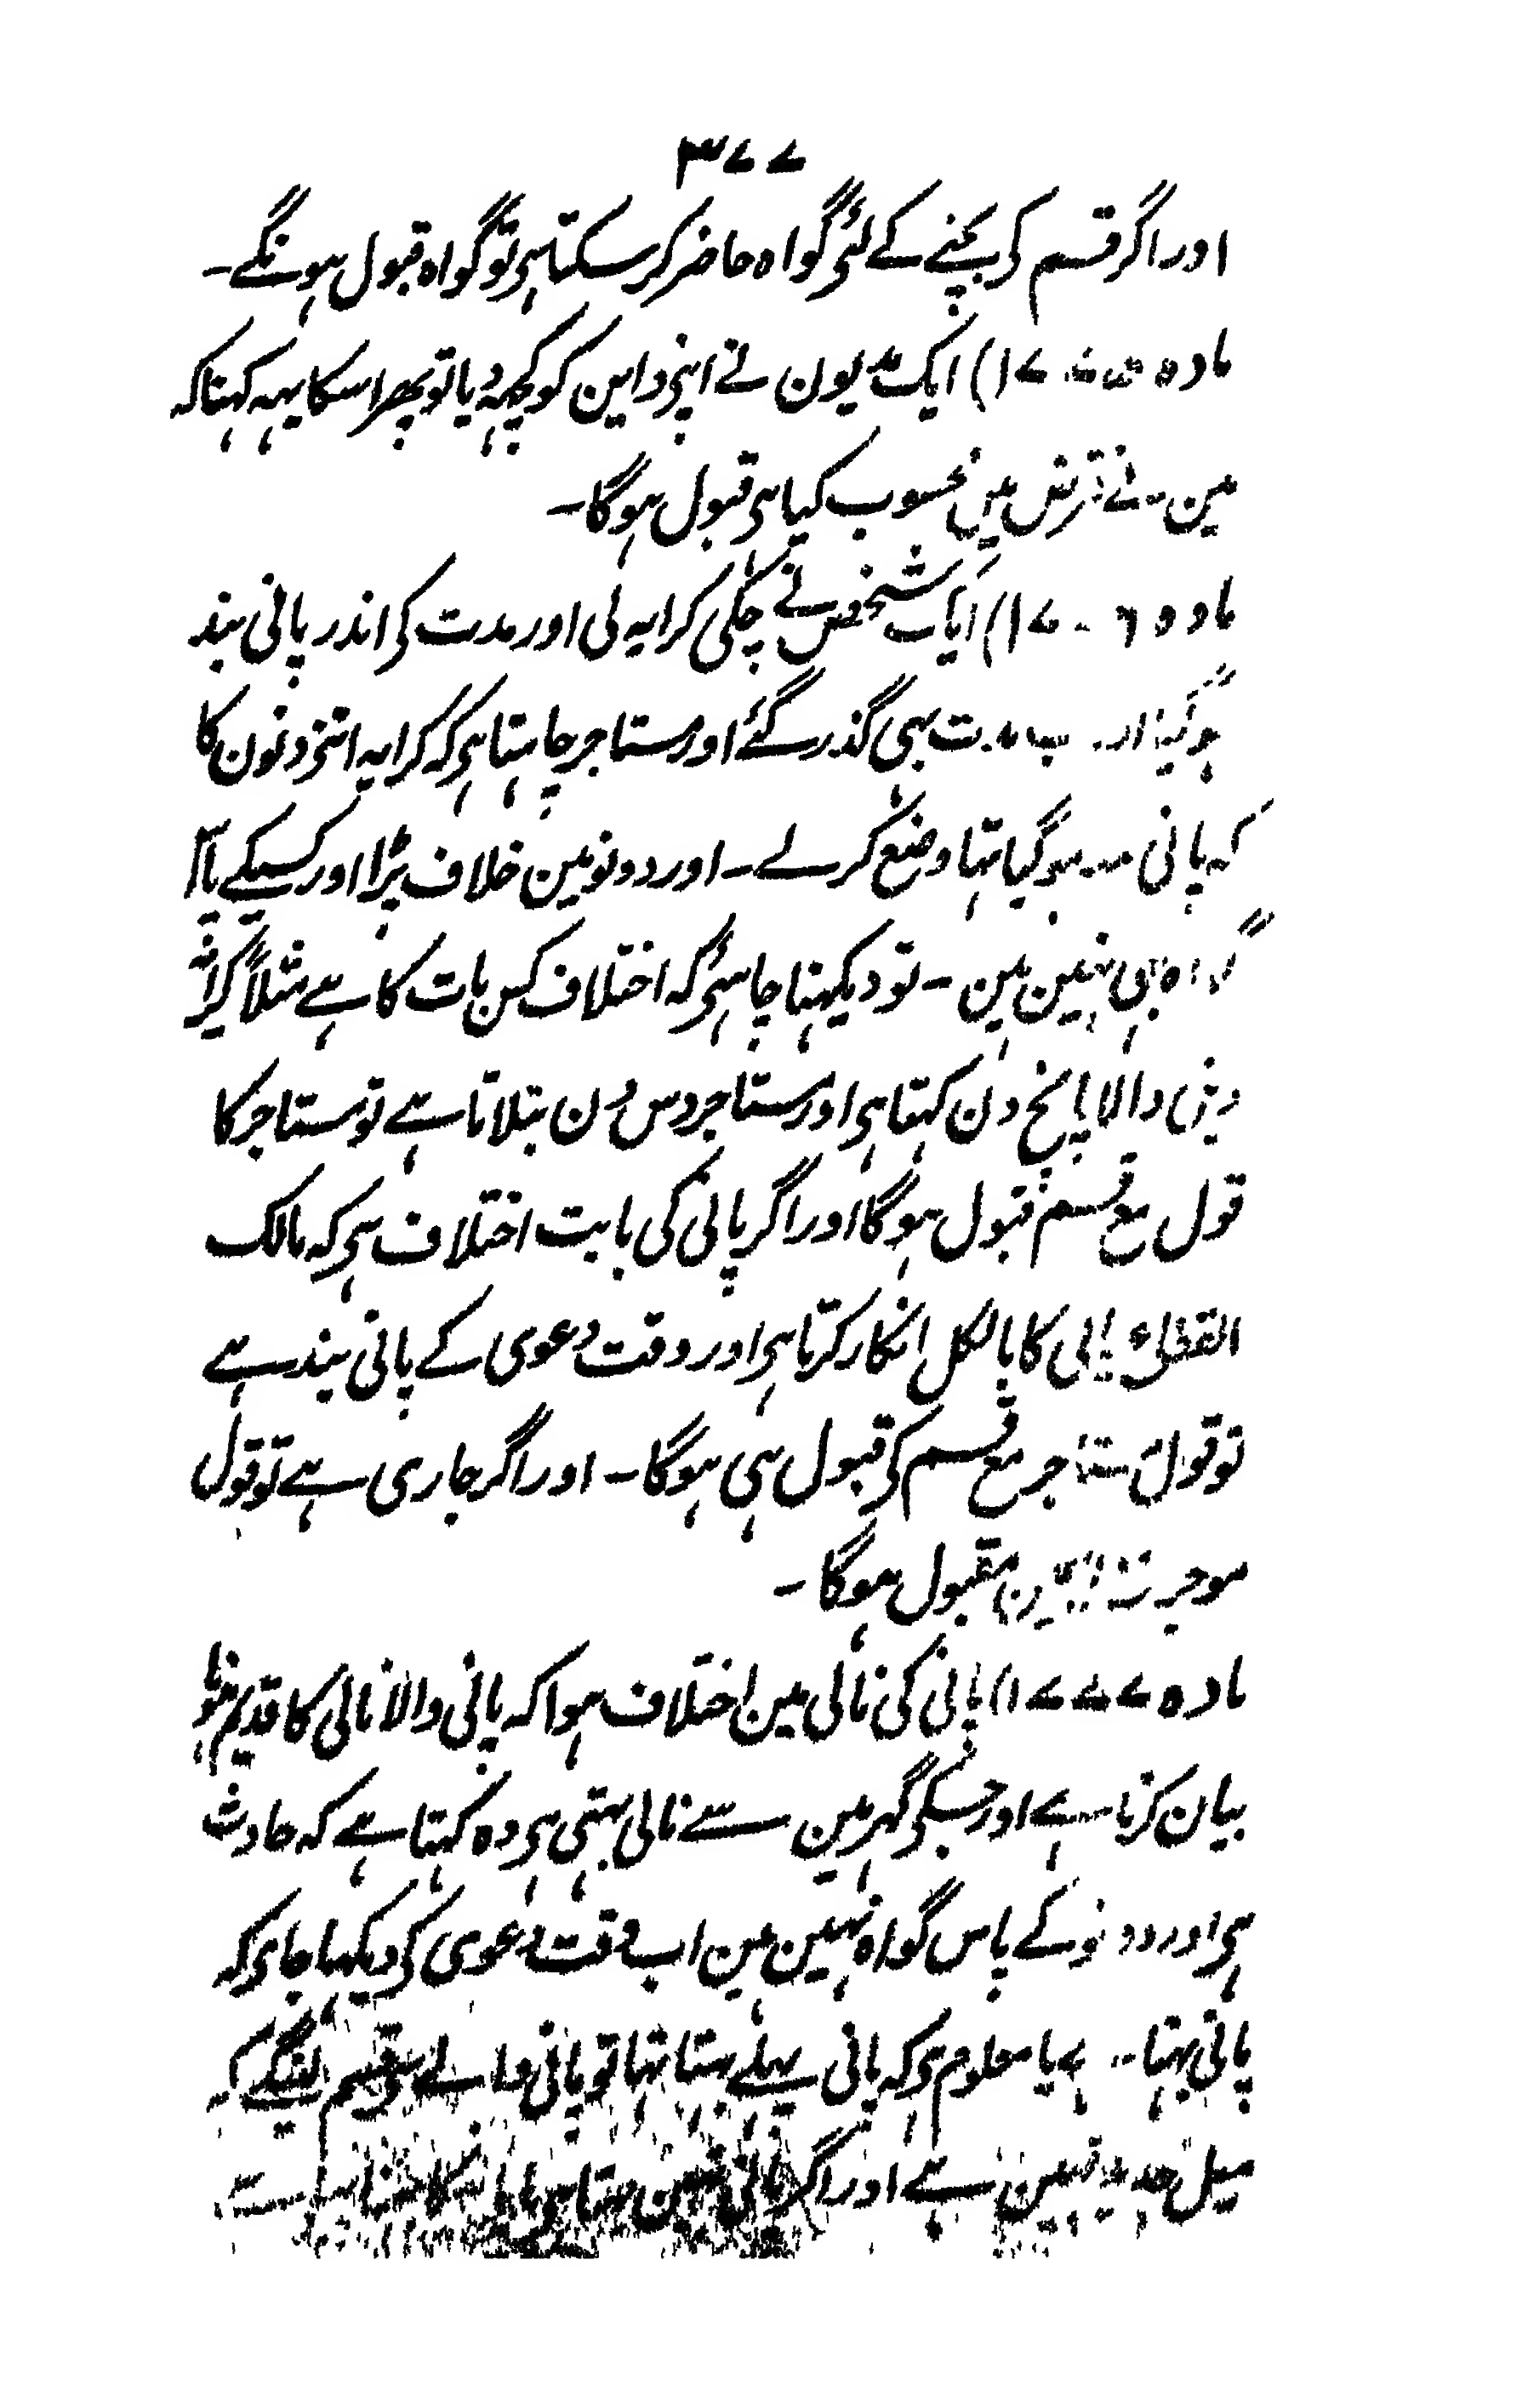 ۳۷۷
اور اگر قسم کی بچنے کے لئی گواہ حاضر کر سکتا ہی تو گواہ قبول ہونگے۔
مادہ ۱۷۷۵) ایک مدیون نے اپنی داین کو کچھہ دیا تو پھر اسکا یہہ کہنا کہ
مین نے قرض میں محسوب کیا ہی قبول ہوگا۔
مادہ ۱۷۷۶) ایک شخص نے چکی کرایہ لی اور مدت کی اندر پانی بند
ہوگیا اور مدت بہی گذر گئے اور مستاجر چاہتا ہی کہ کرایہ اتنی دنون کا
کہ پانی ہوگیا تہا وضع کر لے۔ اور دونو مین خلاف پڑا اور کسیکے پاس
گواہ بہی نہین ہین۔ تو دیکہنا چاہئی کہ اختلاف کس بات کا ہے مثلاً کرایہ
دینی والا پانچ دن کہتا ہی اور مستاجر دس دن بتلاتا ہے تو مستاجر کا
قول مع قسم قبول ہوگا اور اگر پانی کی بابت اختلاف ہی کہ مالک
پانی کا بالکل انکار کرتا ہی اور وقت دعوی کے پانی بند ہے
تو قول مستاجر مع قسم کی قبول ہی ہوگا۔ اور اگر جاری ہے تو قول
موجر مقبول ہوگا۔
مادہ ۱۷۷۷) پانی کی نالی مین اختلاف ہوا کہ پانی والا نالی کا قدیم ہونا
بیان کرتا ہے اور جسکی گہر مین سے نالی بہتی ہی وہ کہتا ہے کہ حادث
ہی اور دونو کے پاس گواہ نہین ہین اب وقت دعوی کی دیکہا جای کہ
پانی بہتا ہے یا معلوم ہی کہ پانی پہلے بہتا تہا تو پانی والے سی قسم لینگے کہ
جدید نہین ہے اور اگر پانی نہین بہتا